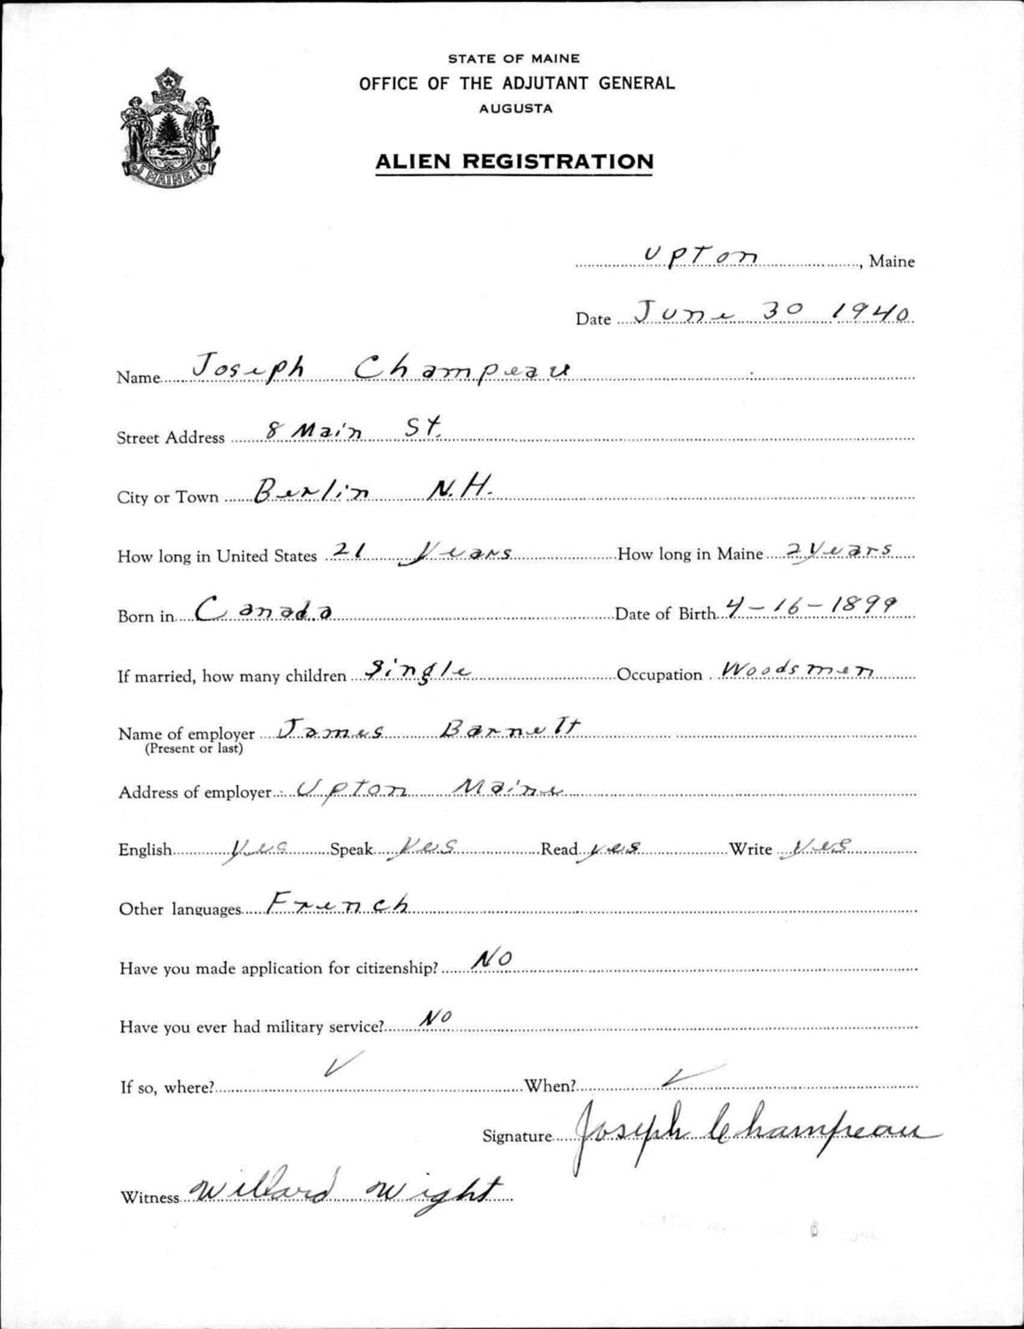 STATE OF MAINE
OFFICE OF THE ADJUTANT GENERAL
AUGUSTA
ALIEN REGISTRATION
MAINE
Upton, Maine
Date June 30 1940
Name Joseph Champeau
Street Address 8 Main St.
City or Town Berlin N.H.
How long in United States 21 Years How long in Maine 2 Years
Born in Canada Date of Birth 4-16-1899
If married, how many children Single Occupation Woodsmen
Name of employer James Barnett
(Present or last)
Address of employer Upton Maine
English Yes Speak Yes Read yes Write Yes
Other languages French
Have you made application for citizenship? No
Have you ever had military service? No
If so, where? ✓ When? ✓
Signature Joseph Champeau
Witness Willard Wight